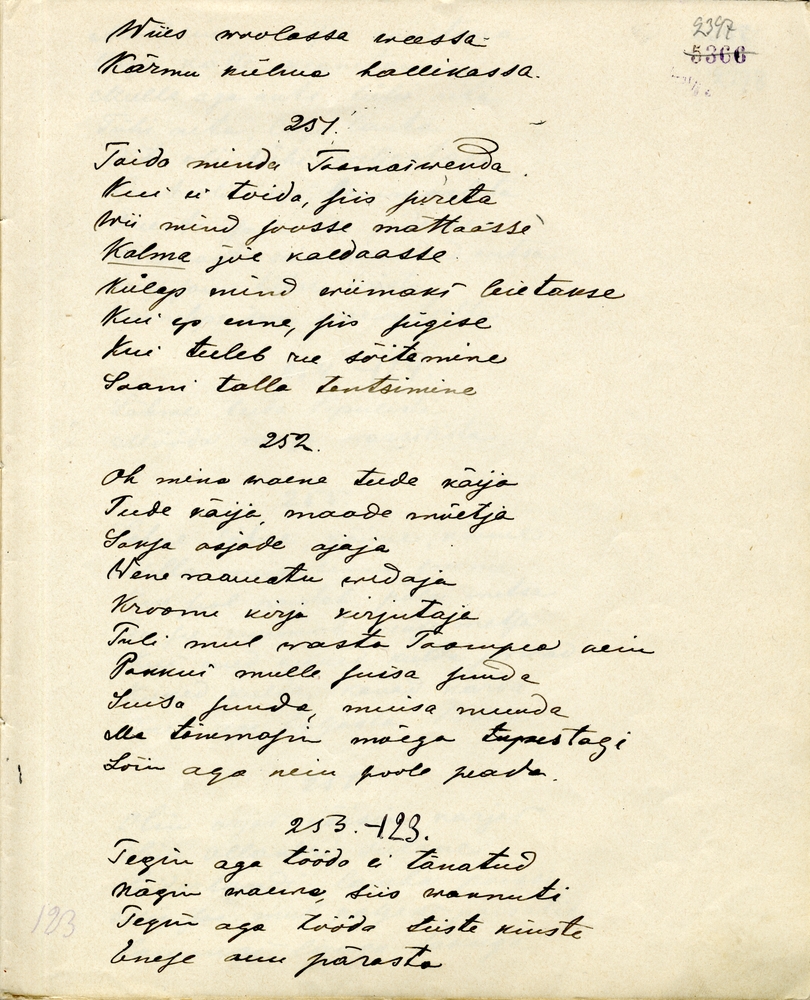 2397
5366
Wiis woolassa weessa
Kärmu külma hallikassa.
251.
Toida minda Toomaswenda
Kui ei toida, siis sureta
Wii mind soosse mättaasse
Kalma jõe kaldaasse
Külep mind wiimaks leietakse
Kui ep enne, siis sügise
Kui tuleb ree sõitemine
Saani talla tantsimine
252.
Oh mina waene teede käija
Teede käija, maade mõetja
Saksa asjade ajaja
Wene raamatu wedaja
Kroonu kirja kirjutaja
Tuli mul wasta Toompea nein
Pakkus mulle suisa suuda
Suisa suuda, muisa muuda
Ma tõmmasin mõega tupestagi
Lõin aga nein poole peada.
253. 123.
Tegin aga tööda ei tänatud
Nägin waewa, siis wannuti
Tegin aga tööda teiste kiuste
Enese auu pärasta
123